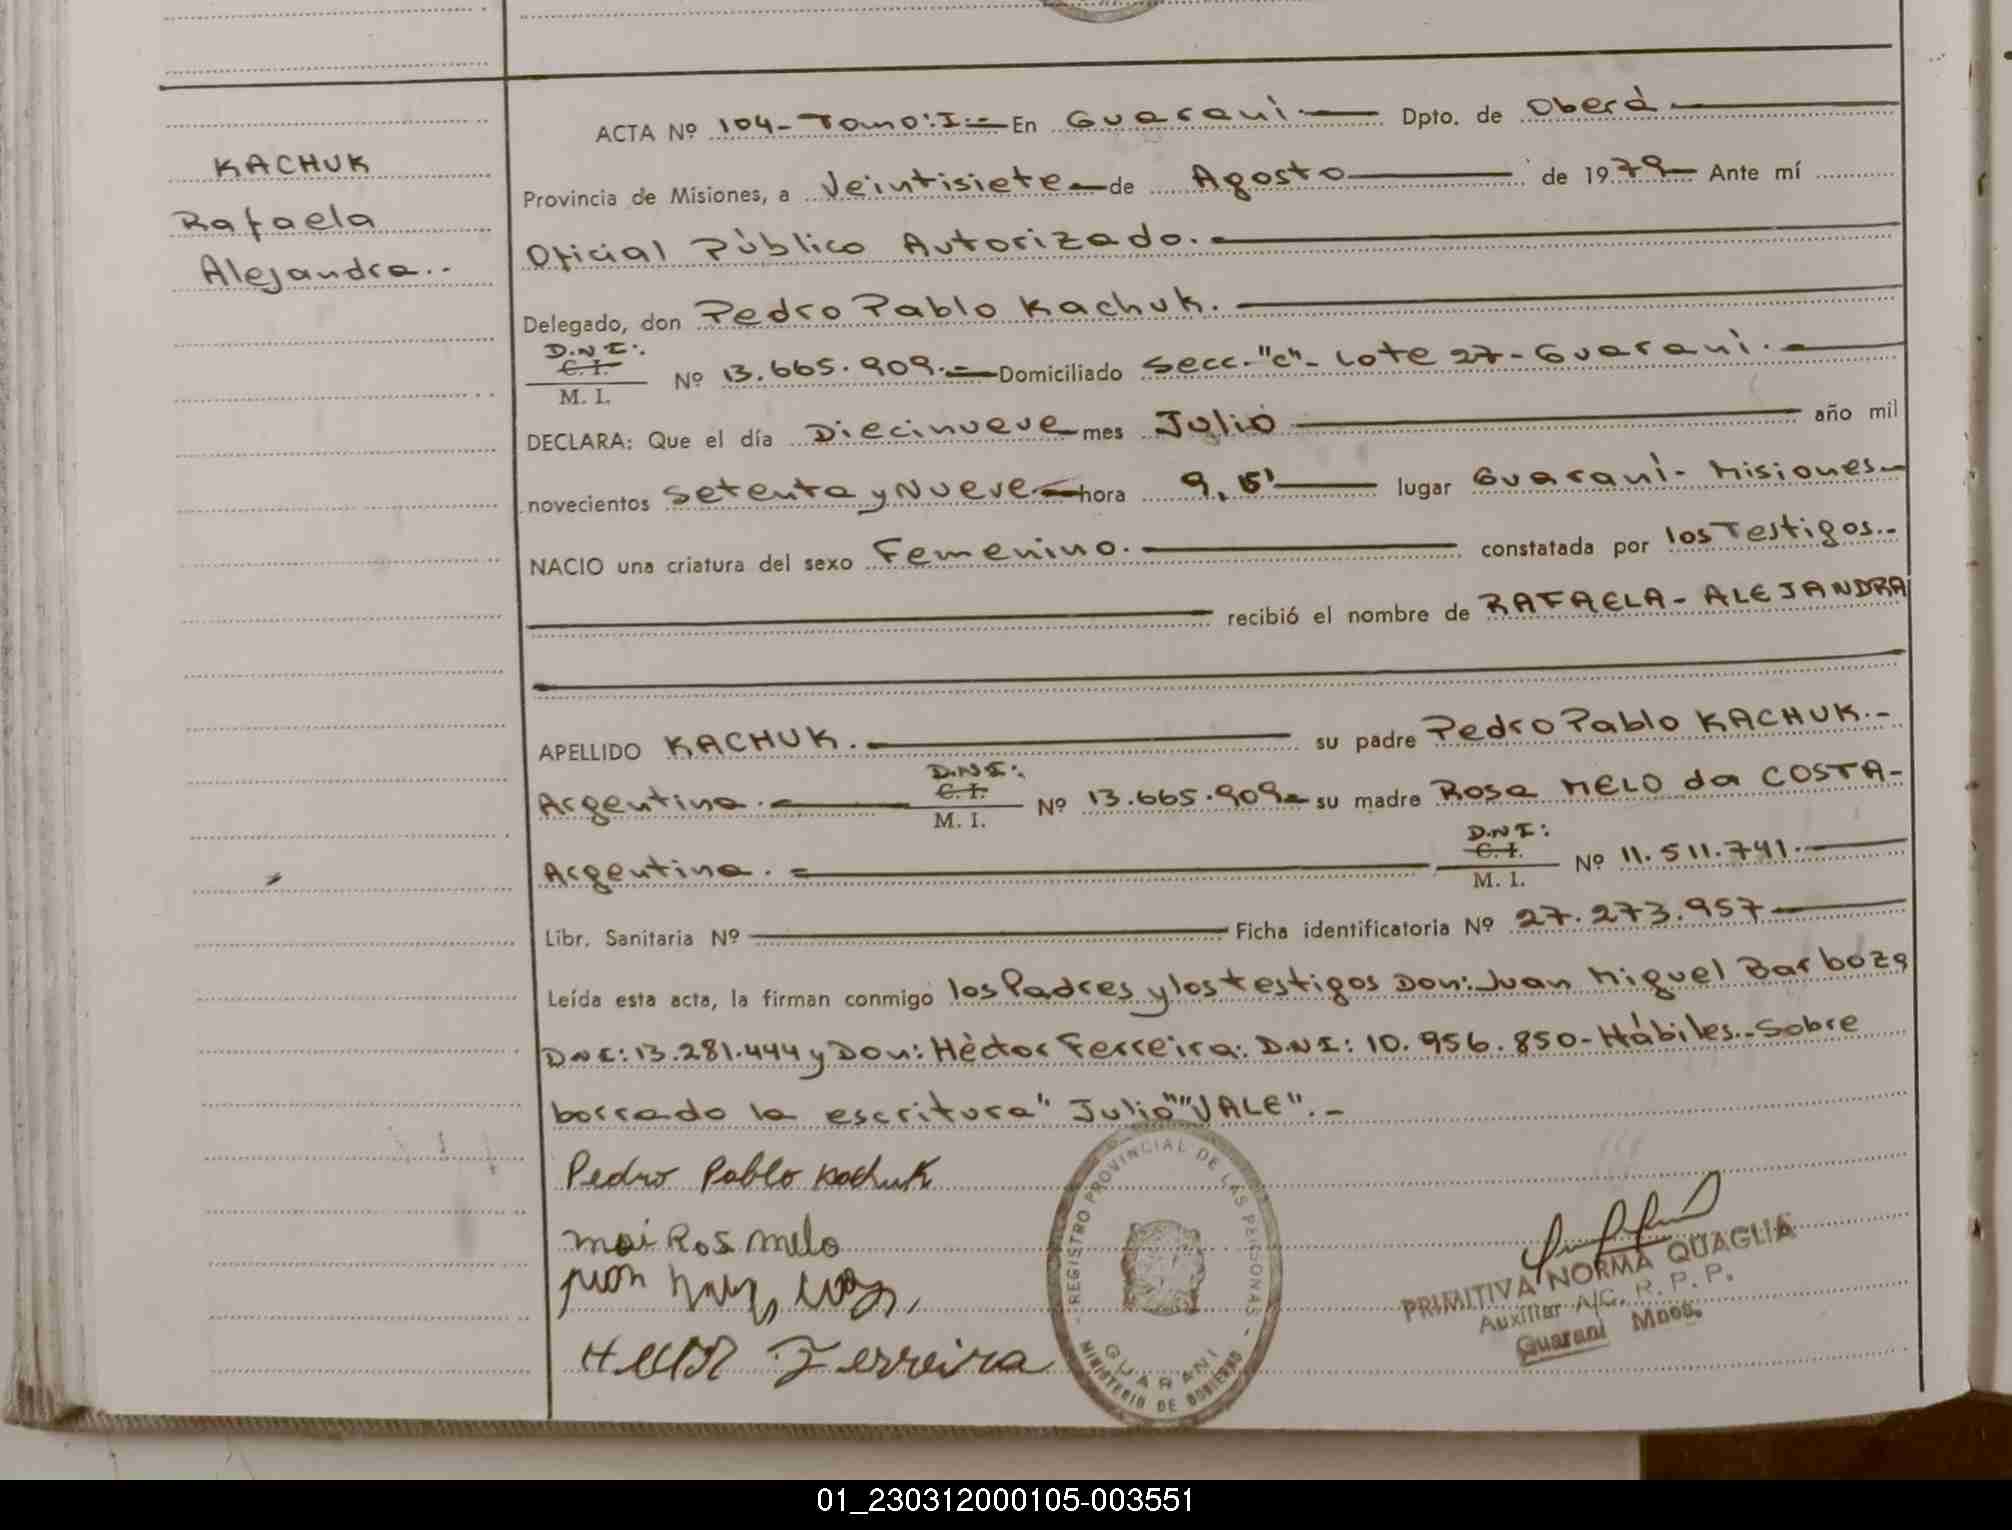 KACHUK
Rafaela
Alejandra..
ACTA Nº 104- Tomo: I.- En Guaraní Dpto. de Oberá
Provincia de Misiones, a Veintisiete de Agosto de 1979 Ante mí
Oficial Público Autorizado.
Delegado, don Pedro Pablo Kachuk.
D.N.I:.
C. I.
M. I.
Nº 13.665.909.- Domiciliado Secc.-"C"- Lote 27- Guaraní.-
DECLARA: Que el día Diecinueve mes Julio año mil
novecientos Setenta y Nueve hora 9,15' lugar Guaraní- Misiones-
NACIO una criatura del sexo Femenino. constatada por los Testigos.-
recibió el nombre de RAFAELA- ALEJANDRA
APELLIDO KACHUK. su padre Pedro Pablo KACHUK.-
D.N.I:.
C. I.
Argentino. M. I. Nº 13.665.909- su madre Rosa MELO da COSTA-
D.N I:
C. I.
Argentina. M. I. Nº 11.511.741.
Libr. Sanitaria Nº Ficha identificatoria Nº 27.273.957
Leída esta acta, la firman conmigo los Padres y los testigos Don: Juan Miguel Barboza
D.N.I: 13.281.444 y Don: Héctor Ferreira: D.N.I: 10.956.850- Hábiles.- Sobre
borrado la escritura" Julio""VALE".-
Pedro Pablo Kachuk
Ros Melo
Hector Ferreira
- REGISTRO PROVINCIAL DE LAS PERSONAS -
GUARANI
MINISTERIO DE GOBIERNO
PRIMITIVA NORMA QUAGLIA
Auxiliar A/C. R. P. P.
Guaraní Mnes.
01_230312000105-003551